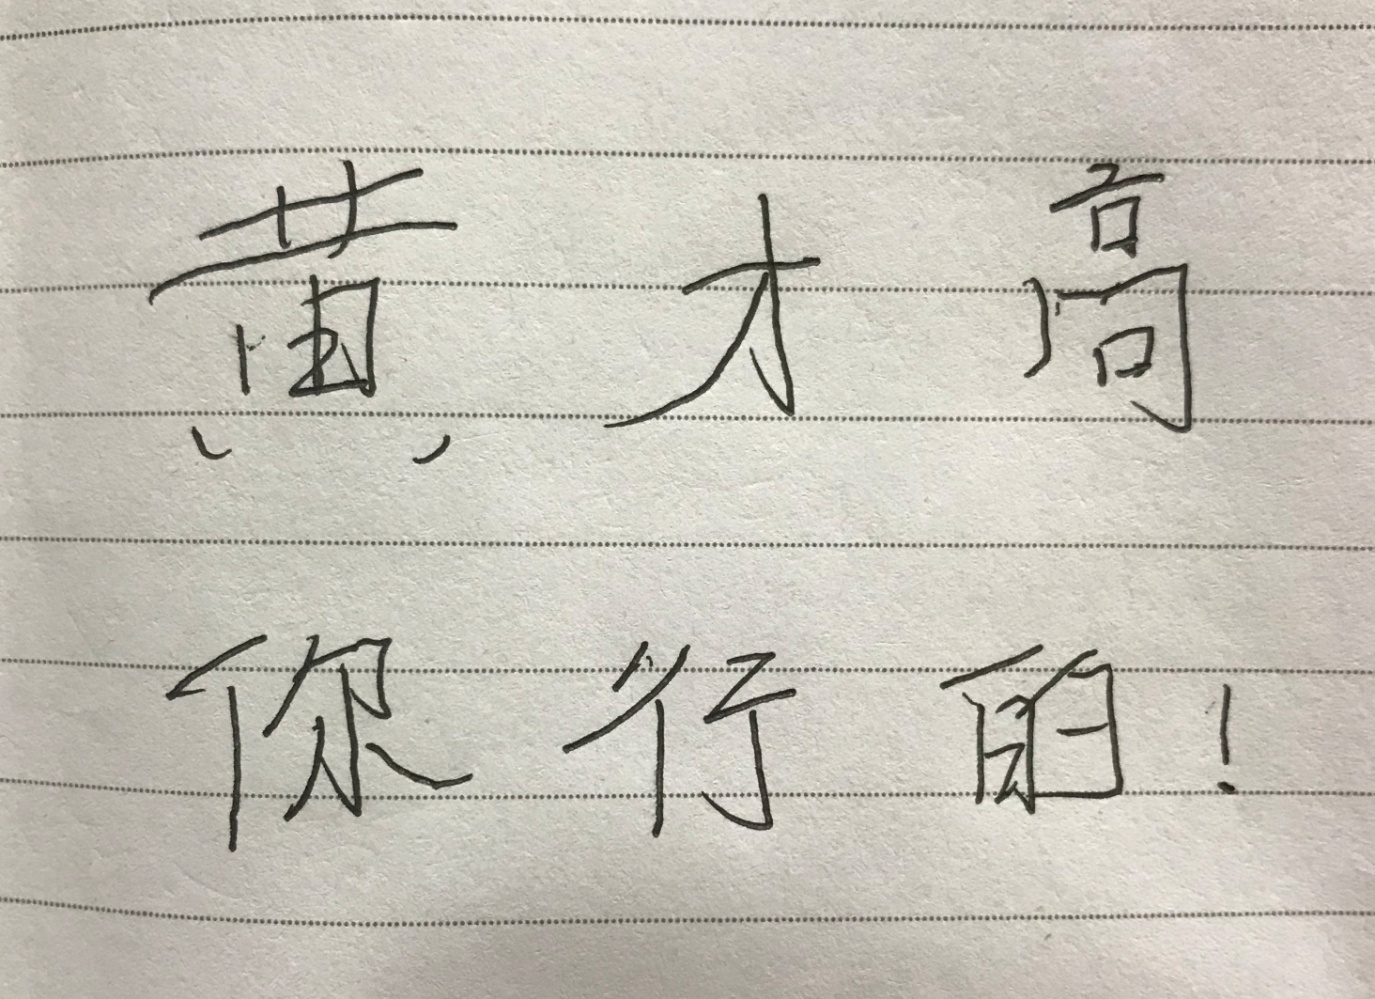 黄才高
你行的！